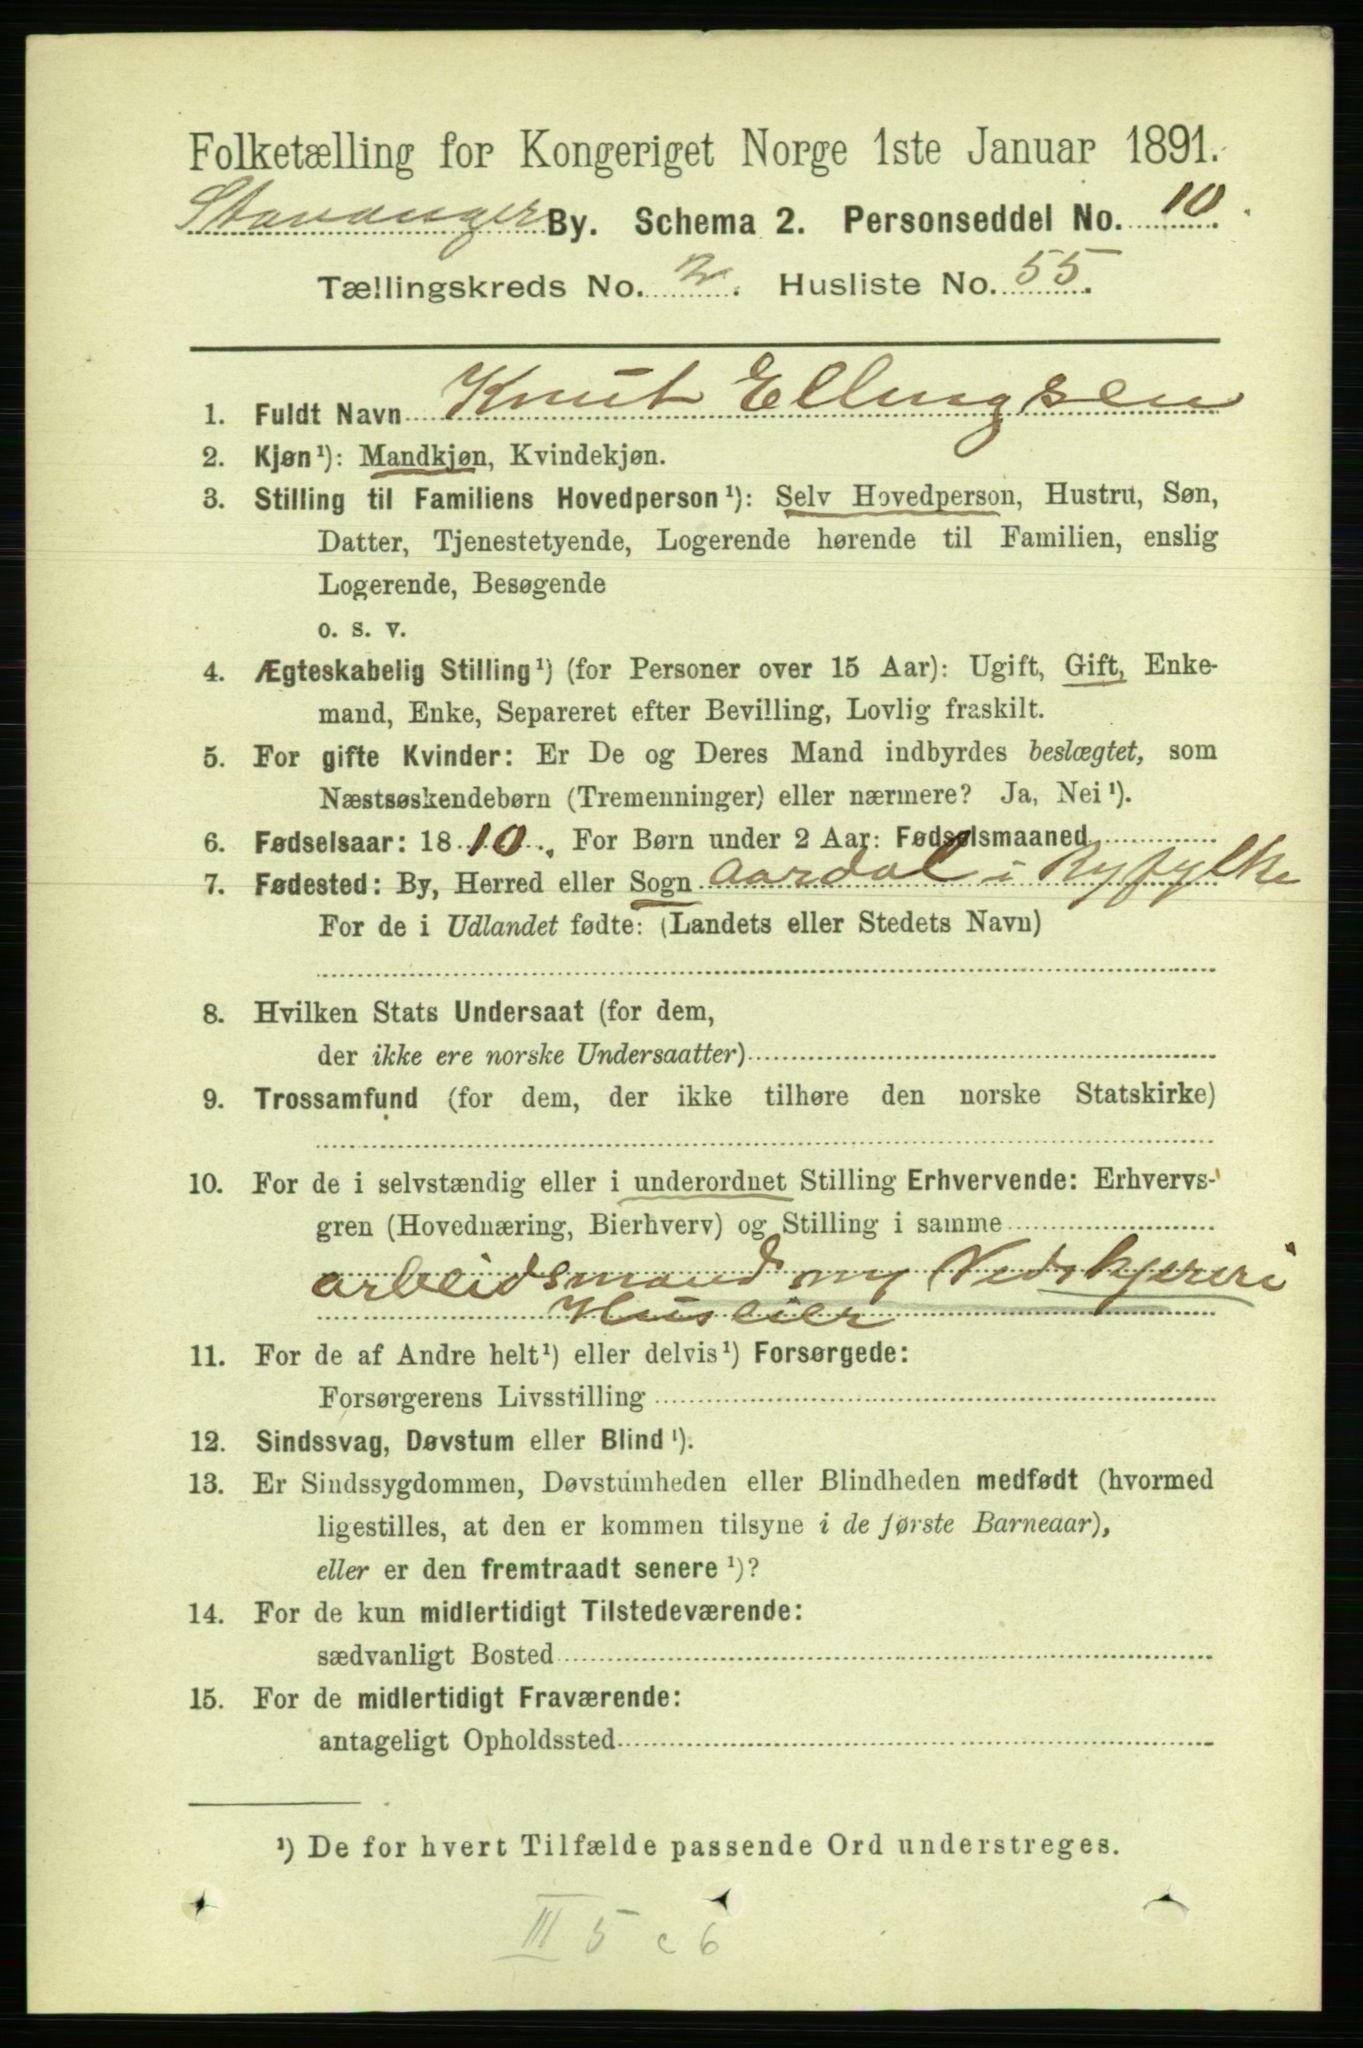 Folketælling for Kongeriget Norge 1ste Januar 1891.
Stavanger By. Schema 2. Personseddel No. 10.
Tællingskreds No. 2. Husliste No. 55.
1. Fuldt Navn Knut Ellingsen
2. Kjøn¹): Mandkjøn, Kvindekjøn.
3. Stilling til Familiens Hovedperson¹): Selv Hovedperson, Hustru, Søn,
Datter, Tjenestetyende, Logerende hørende til Familien, enslig
Logerende, Besøgende
o. s. v.
4. Ægteskabelig Stilling¹) (for Personer over 15 Aar): Ugift, Gift, Enke-
mand, Enke, Separeret efter Bevilling, Lovlig fraskilt.
5. For gifte Kvinder: Er De og Deres Mand indbyrdes beslægtet, som
Næstsøskendebørn (Tremenninger) eller nærmere? Ja, Nei¹).
6. Fødselsaar: 1810. For Børn under 2 Aar: Fødselsmaaned
7. Fødested: By, Herred eller Sogn Aardal i Ryfylke
For de i Udlandet fødte: (Landets eller Stedets Navn)
8. Hvilken Stats Undersaat (for dem,
der ikke ere norske Undersaatter)
9. Trossamfund (for dem, der ikke tilhøre den norske Statskirke)
10. For de i selvstændig eller i underordnet Stilling Erhvervende: Erhvervs-
gren (Hovednæring, Bierhverv) og Stilling i samme
arbeidsmand Vedskjereri
Huseier
11. For de af Andre helt¹) eller delvis¹) Forsørgede:
Forsørgerens Livsstilling
12. Sindssvag, Døvstum eller Blind¹).
13. Er Sindssygdommen, Døvstumheden eller Blindheden medfødt (hvormed
ligestilles, at den er kommen tilsyne i de første Barneaar),
eller er den fremtraadt senere¹)?
14. For de kun midlertidigt Tilstedeværende:
sædvanligt Bosted
15. For de midlertidigt Fraværende:
antageligt Opholdssted
¹) De for hvert Tilfælde passende Ord understreges.
III 5 c 6